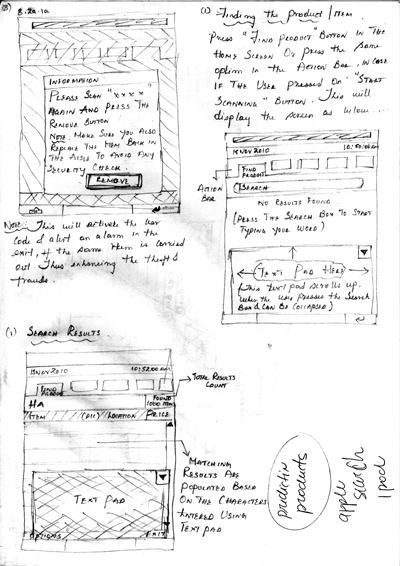 8.20.10
INFORMATION
PLEASE SCAN "XXXX"
AGAIN AND PRESS THE
REMOVE BUTTON
NOTE: MAKE SURE YOU ALSO
REPLACE THE ITEM BACK IN
THE AISLE TO AVOID ANY
SECURITY CHECK.
REMOVE
Note: This will activate the bar
code & alert on alarm in the
exit, if the same item is carried
out. Thus enhancing the theft &
frauds.
Finding the Product/Item.
PRESS "FIND PRODUCT" BUTTON IN THE
HOME SCREEN OR press the same
option in the ACTION BAR, IN CASE
IF THE USER PRESSED ON "START
SCANNING" BUTTON. This will
display the screen as below...
15NOV2010
FIND
PRODUCT
ACTION
BAR
SEARCH
NO RESULTS FOUND
(PRESS THE SEARCH BOX TO START
TYPING YOUR WORD)
TEXT PAD HERE
(This text pad scrolls up,
when the user presses the Search
Box & CAN BE COLLAPSED)
(1) SEARCH RESULTS
15NOV2010 10:52:00 AM
FIND
PRODUCE
TOTAL RESULTS
COUNT
HA
FOUND
1000 ITEMS
ITEM (PIC) LOCATION PRICE
MATCHING
RESULTS ARE
POPULATED BASED
ON THE CHARACTERS
ENTERED USING
TEXT PAD
TEXT PAD
OPTIONS EXIT
products
apple
search
ipod